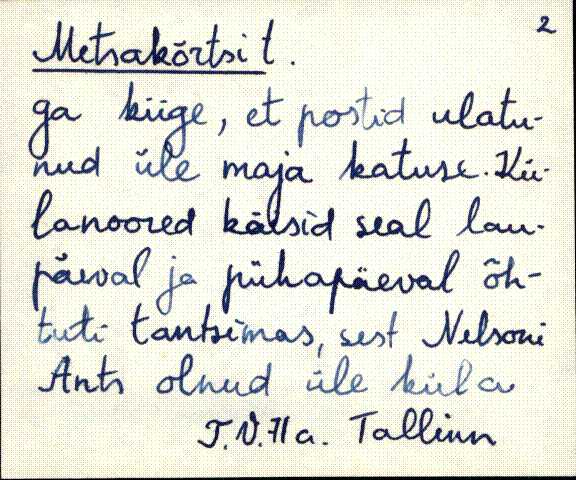 2
Metsakõrtsi t.
ga kiige, et postid ulatu-
nud üle maja katuse. Kü-
lanoored käisid seal lau-
päeval ja pühapäeval õh-
tuti tantsimas, sest Nelsoni
Ants olnud üle küla
T.V. 71 a. Tallinn